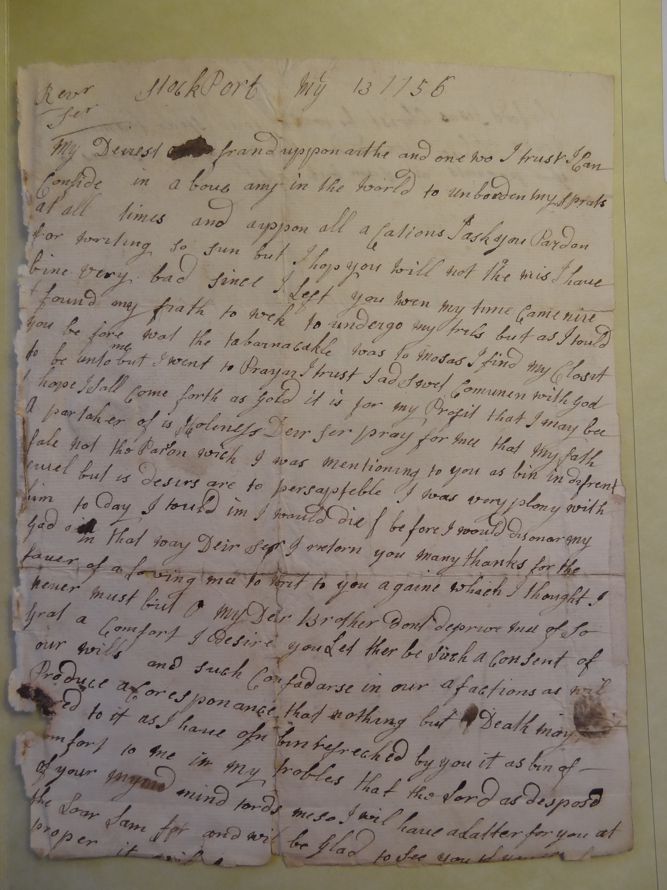 Revr Ser StockPort My 13 1756
My Deirest frand uppon arthe and one wo I trust I Can
Confide in a bove any in the World to unborden my sprats
at all times and uppon all a Cations I ask you Pardon
for writing so sun but I hop you will not the mis I have
bine very bad since I Left you wen my time Came nire
I found my frath to wek to undergo my trils but as I tould
you be fore wat the tabarnacakle was to Mosas I find my Closit
to be unto me but I went to Prayar I trust I ad swet Comunen with God
I hope I sall come forth as Gold it is for my Profit that I may bee
A partaker of is Holeness Deir Ser pray for mee that my fath
fale not the Parson wich I was mentioning to you as bin in difrent
but is desirs are to persapteble I was very plany with
him to day I tould im I would die be fore I would disonor my
God in that way Deir Ser I retorn you many thanks for the
faver of a lowing me to writ to you againe which I thought I
never must but O my Deir Brother Dont deprive mee of so
Grat a Comfort I desire you Let ther be such a Consent of
our wills and such Confadarse in our afactions as will
Produce a Coresponance that nothing but Death may
to it as I have ofn bin refreched by you it as bin of
Comfort to me in my trobles that the Lord as desposd
of your mind tords me so I will have a Latter for you at
the Sam and will be Glad to see you if you
proper it